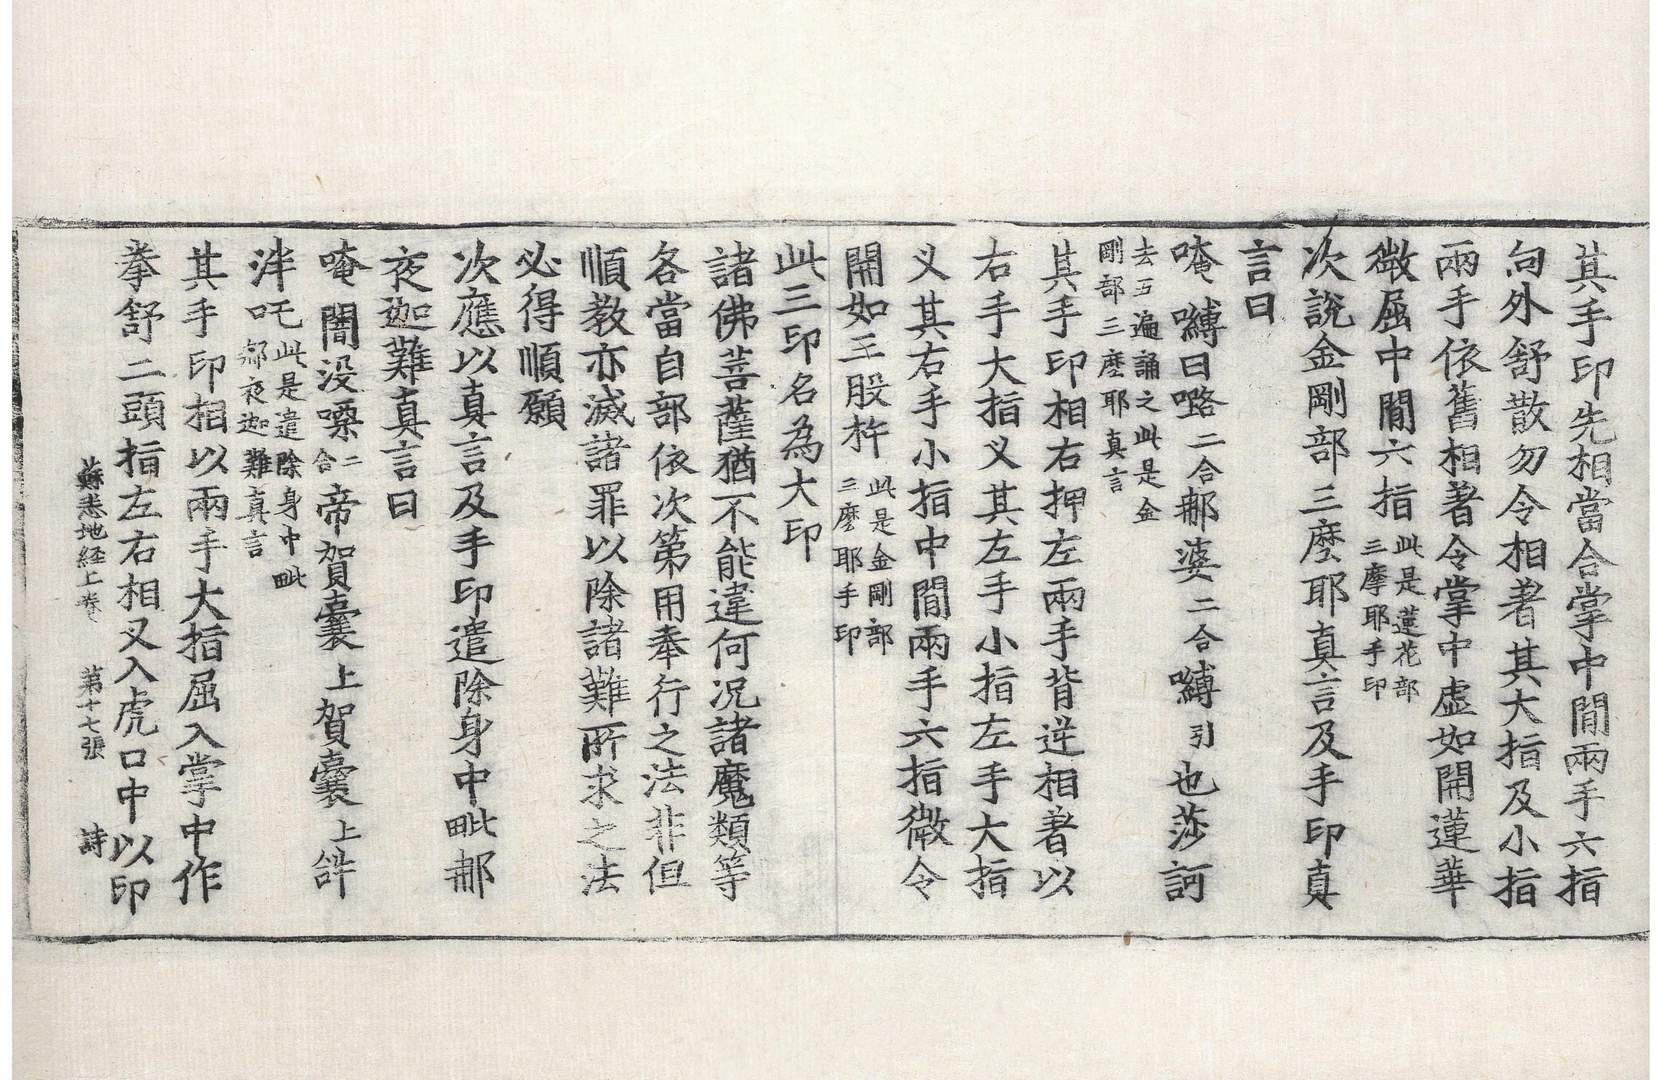 其手印先相當合掌中間兩手六指
向外舒散勿令相著其大指及小指
兩手依舊相著令掌中虛如開蓮華
微屈中間六指此是蓮花部
三摩耶手印
次說金剛部三麽耶真言及手印真
言曰
唵嚩日㗚二合郝婆二合嚩引也莎訶
去五遍誦之此是金
剛部三麽耶真言
其手印相右押左兩手背逆相著以
右手大指叉其左手小指左手大指
叉其右手小指中間兩手六指微令
開如三股杵此是金剛部
三麽耶手印
此三印名為大印
諸佛菩薩猶不能違何況諸魔類等
各當自部依次第用奉行之法非但
順教亦滅諸罪以除諸難所求之法
必得順願
次應以真言及手印遣除身中毗郝
夜迦難真言曰
唵闇没㗚二合帝賀囊上賀囊上𤙖
泮吒此是遣除身中毗
郝夜迦難真言
其手印相以兩手大指屈入掌中作
拳舒二頭指左右相叉入虎口中以印
蘇悉地経上卷 第十七張 詩